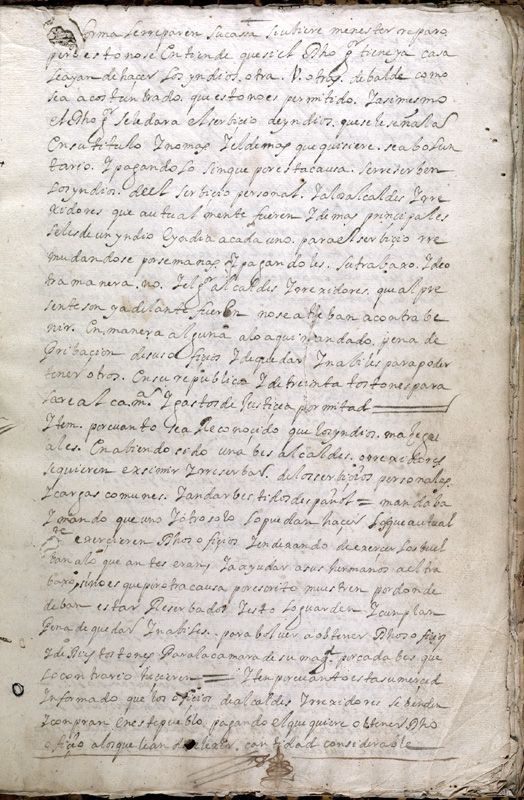 forma se reparen su casa si ubiere menester reparo
pero esto no se Entiende que si el Dho gr tiene ya casa
le ayan de hacer Los yndios otra. U otras de balde como
sea acostunbrado. que esto no es permitido. Y asimesmo
el Dho gr se le dara el serbicio. de yndios. que se le señalas
En su titulo Y no mas Y el demas que quisiere. sea bolun
tario. Y pagandolo sin que por esta causa. se rreserben
Los yndios. de el serbicio personal. Y a los alcaldes Y rre
xidores que autualmente fueren Y demas principales
se les de un yndio Cada dia a cada uno. para el serbicio rre
mudandose por semanas Y pagandoles. su trabaxo. Y de o
tra manera. no. Y el gr alcaldes Y rrexidores. que al pre
sente son y adelante fueren no se atreban a contrabe
nir. En manera alguna a lo aqui mandado, pena de
Pribacion de sus oficios Y de quedar Ynabiles para poder
tener otros. En su republica Y de treinta tostones para
la real cam.ra Y gastos de Justicia por mitad
Yten. por quanto sea Reconocido que los yndios. mazegu
ales. En abiendo sido una bes alcaldes. o rrexidores
se quieren eximir Y rreserbar. de los serbicios personales.
Y cargas comunes. Y andar bestidos de español = mandaba
Y mando que uno Y otro solo Lo puedan hacer Los que autual
mte exercieren Dhos oficios Y en dexando de exercer Los buel
ban a lo que antes eran. Y a ayudar a sus hermanos a el tra
baxo, sino es que por otra causa por escrito muestren por donde
deban estar Reserbados Y esto Lo guarden Y cunplan
Pena de quedar Ynabiles. para bolver a obtener Dhos oficios
Y de Diez tostones Para la camara de su magd. por cada bes que
Lo contrario hicieren = Yten por quanto esta su merced
Informado que los oficios de alcaldes Y rrexidores se benden
Y conpran en este pueblo, pagando el que quiere obtener Dho
oficio a los que lean de elexir, cantidad considerable